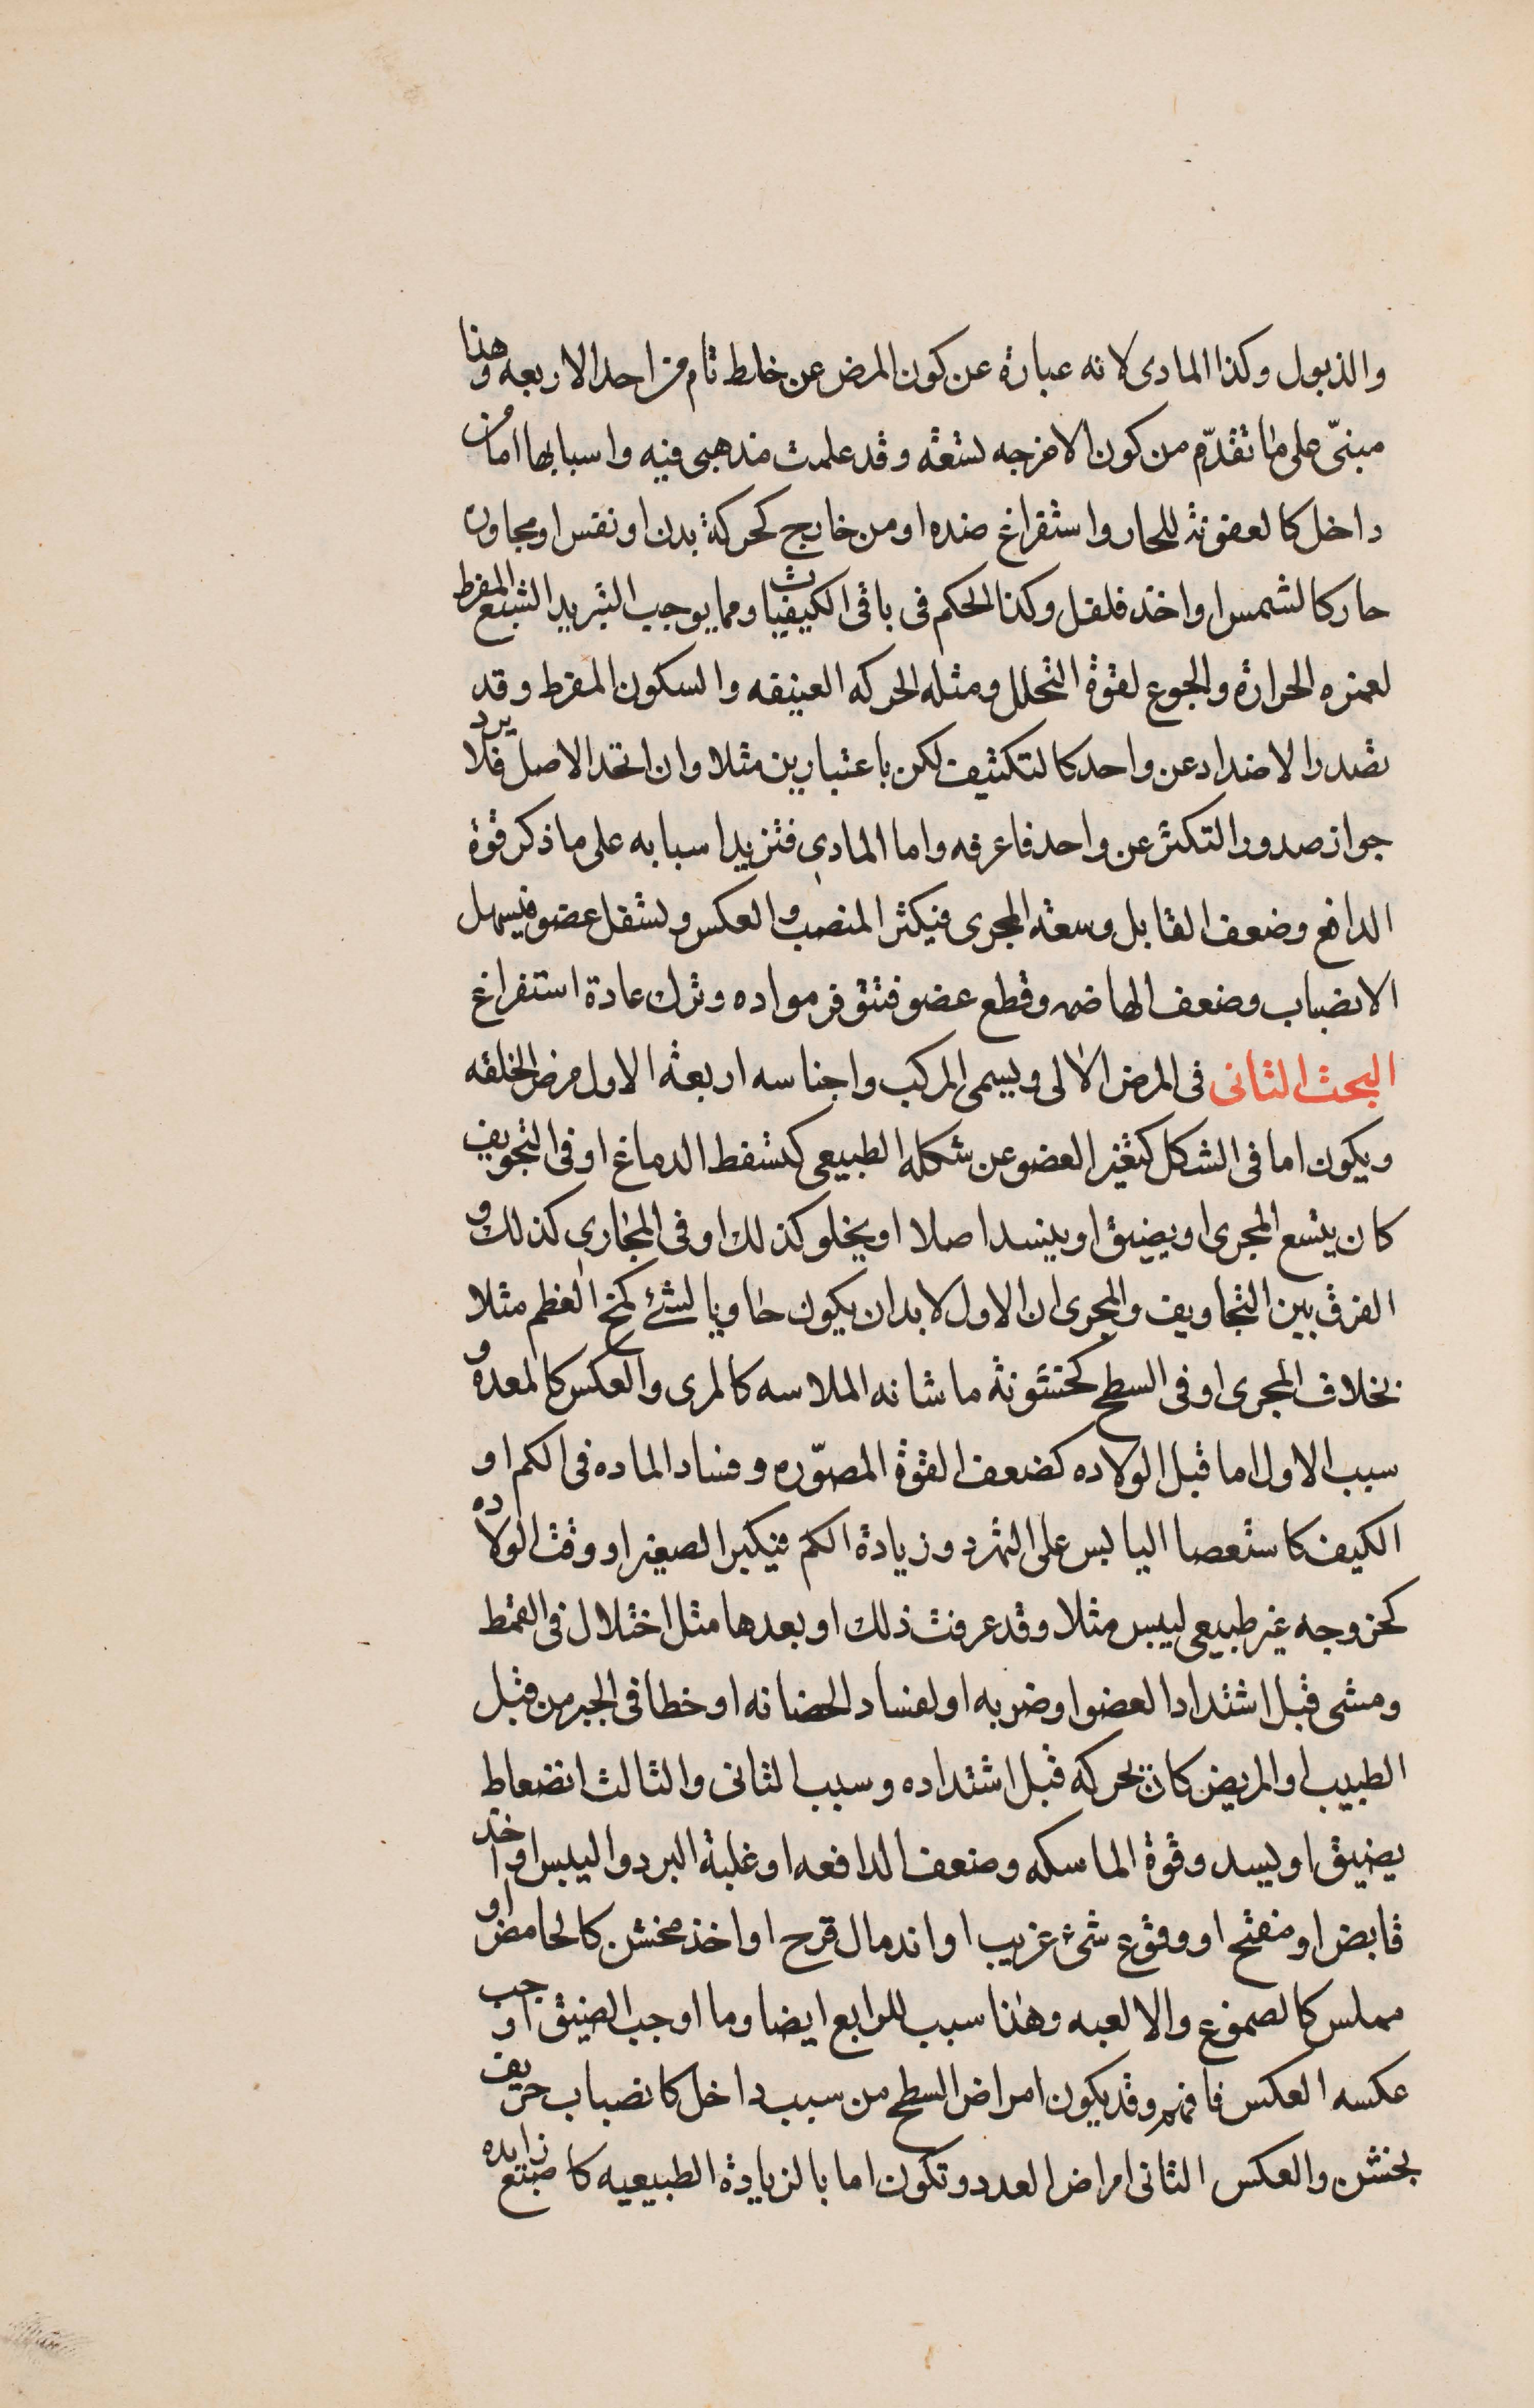 والذبول وكذا المادى لانه عبارة عن كون المرض عن خلط تام من احد الاربعه وهذا
مبنىّ على ما تقدّم من كون الامزجه تسعة وقد علمت مذهبى فيه واسبابها اما من
داخل كالعفونة للحار واستفراغ ضده او من خارج كحركة بدن او نفس او مجاورة
حار كالشمس او اخذ فلفل وكذا الحكم فى باقى الكيفيات ومما يوجب التبريد الشبع المفرط
لغمره الحرارة والجوع لقوة التحلل ومثله الحركه العنيفه والسكون المفرط وقد
تصدر الاضداد عن واحد كالتكثيف لكن باعتبارين مثلا وان اتحد الاصل فلا يرد
جواز صدور التكثر عن واحد فاعرفه واما المادى فتزيد اسبابه على ما ذكر قوة
الدافع وضعف القابل وسعة المجرى فيكثر المنصب والعكس وتسفل عضو فيسهل
الانصباب وضعف الهاضمه وقطع عضو فتتوفر مواده وترك عادة استفراغ
البحث الثانى فى المرض الالى ويسمى المركب واجناسه اربعة الاول مرض الخلقه
ويكون اما فى الشكل كتغير العضو عن شكله الطبيعى كتسفط الدماغ او فى التجويف
كان يتسع المجرى او يضيق او ينسد اصلا او يخلو كذلك او فى المجارى كذلك و
الفرق بين التجاويف والمجرى ان الاول لا بد ان يكون حاويا لشئ كمخ العظم مثلا
بخلاف المجرى او فى السطح كخشونة ما شانه الملاسه كالمرى والعكس كالمعده و
سبب الاول اما قبل الولاده كضعف القوة المصوّره وفساد الماده فى الكم او
الكيف كاستعصا اليابس على التمدد وزيادة الكم فيكبر الصغير او وقت الولاده
كخروجه غير طبيعى ليبس مثلا وقد عرفت ذلك او بعدها مثل اختلال فى القمط
ومشى قبل اشتداد العضو او ضربه او لفساد الحضانه او خطا فى الجبر من قبل
الطبيب او المريض كان يحركه قبل اشتداده وسبب الثانى والثالث انضغاط
يضيق او يسد وقوة الماسكه وضعف الدافعه او غلبة البرد واليبس او اخذ
قابض او مفتح او وقوع شئ غريب او اندمال قرح او اخذ مخشن كالحامض او
مملس كالصموغ والالعبه وهذا سبب للرابع ايضا وما اوجب الضيق اوجب
عكسه العكس فافهم وقد يكون امراض السطح من سبب داخل كانصباب حريف
يخشن والعكس الثانى امراض العدد وتكون اما بالزيادة الطبيعيه كاصبع زايده